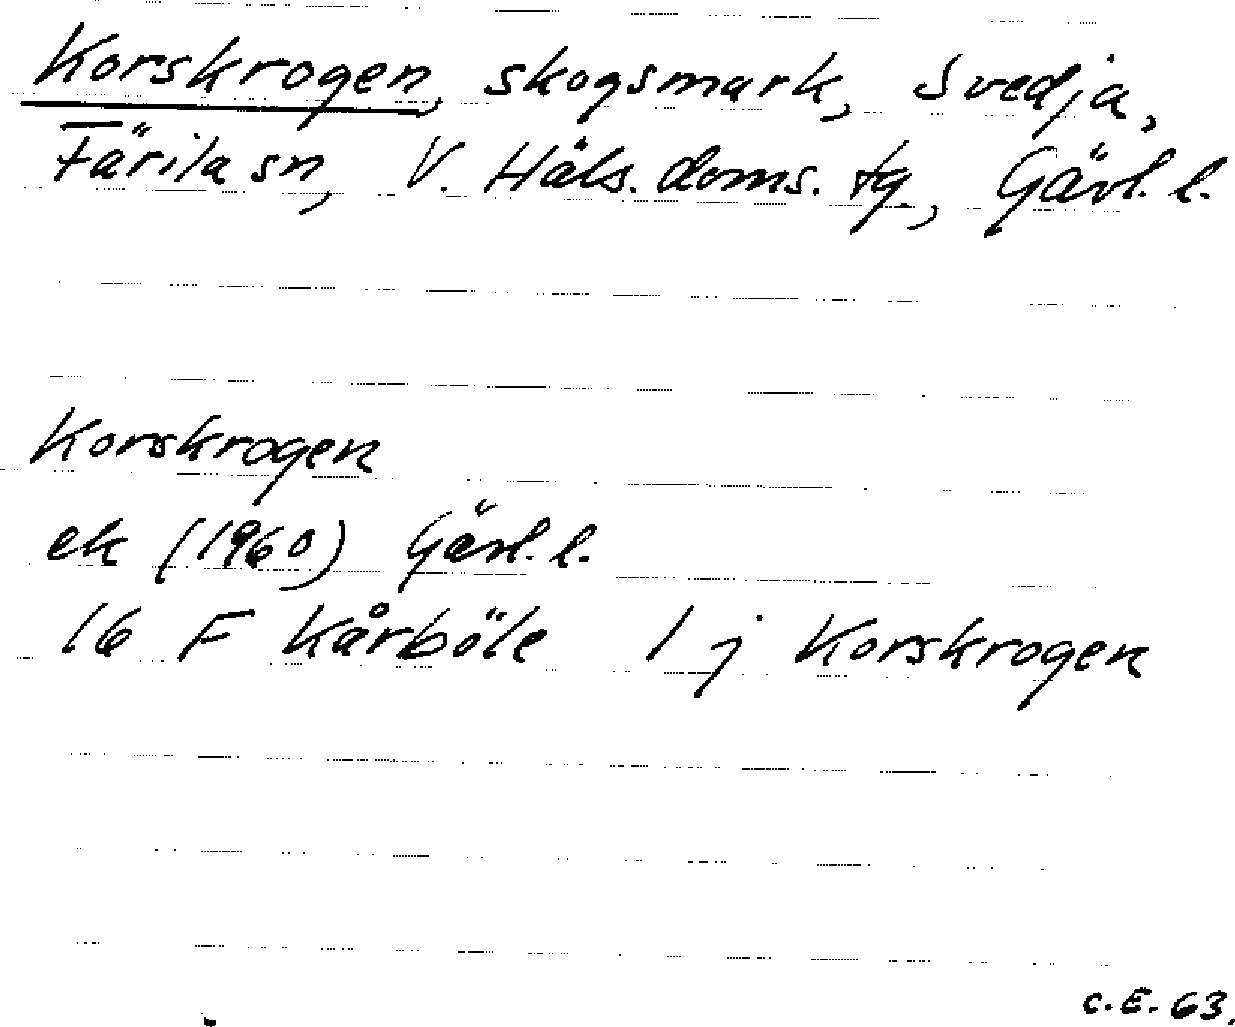 Korskrogen, skogsmark, Svedja,
Färila sn, V. Häls. doms. tg., Gävl. l.
Korskrogen
ek (1960) Gävl. l.
16 F Kårböle 1 j Korskrogen
C.E. 63.